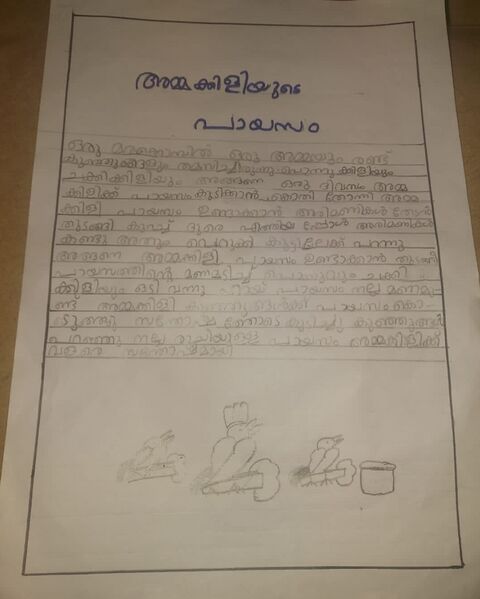 അമ്മക്കിളിയുടെ
പായസം
ഒരു മരക്കൊമ്പിൽ ഒരു അമ്മയും രണ്ട്
കുഞ്ഞുങ്ങളും താമസിച്ചിരുന്നു കിളിയും
ചക്കിക്കിളിയും അങ്ങനെ ഒരു ദിവസം അമ്മ
ക്കിളിക്ക് പായസം കുടിക്കാൻ കൊതി തോന്നി അമ്മ
ക്കിളി പായസം ഉണ്ടാക്കാൻ അരിമണികൾ തേടാൻ
തുടങ്ങി കുറച്ച് ദൂരെ എത്തിയ പ്പോൾ അരിമണികൾ
കണ്ടു അതും പെറുക്കി കൂട്ടിലേക്ക് പറന്നു
അങ്ങനെ അമ്മക്കിളി പായസം ഉണ്ടാക്കാൻ തുടങ്ങി
പായസത്തിന്റെ മണമടിച്ച് ചക്കി
ക്കിളിയും ഓടി വന്നു ഹായ് പായസം നല്ല മണമു
ണ്ട് അമ്മക്കിളി കുഞ്ഞുങ്ങൾക്ക് പായസം കൊ
ടുത്തു സന്തോഷ ത്തോടെ കുടിച്ചു കുഞ്ഞുങ്ങൾ
പറഞ്ഞു നല്ല രുചിയുള്ള പായസം അമ്മക്കിളിക്ക്
വളരെ സന്തോഷമായി